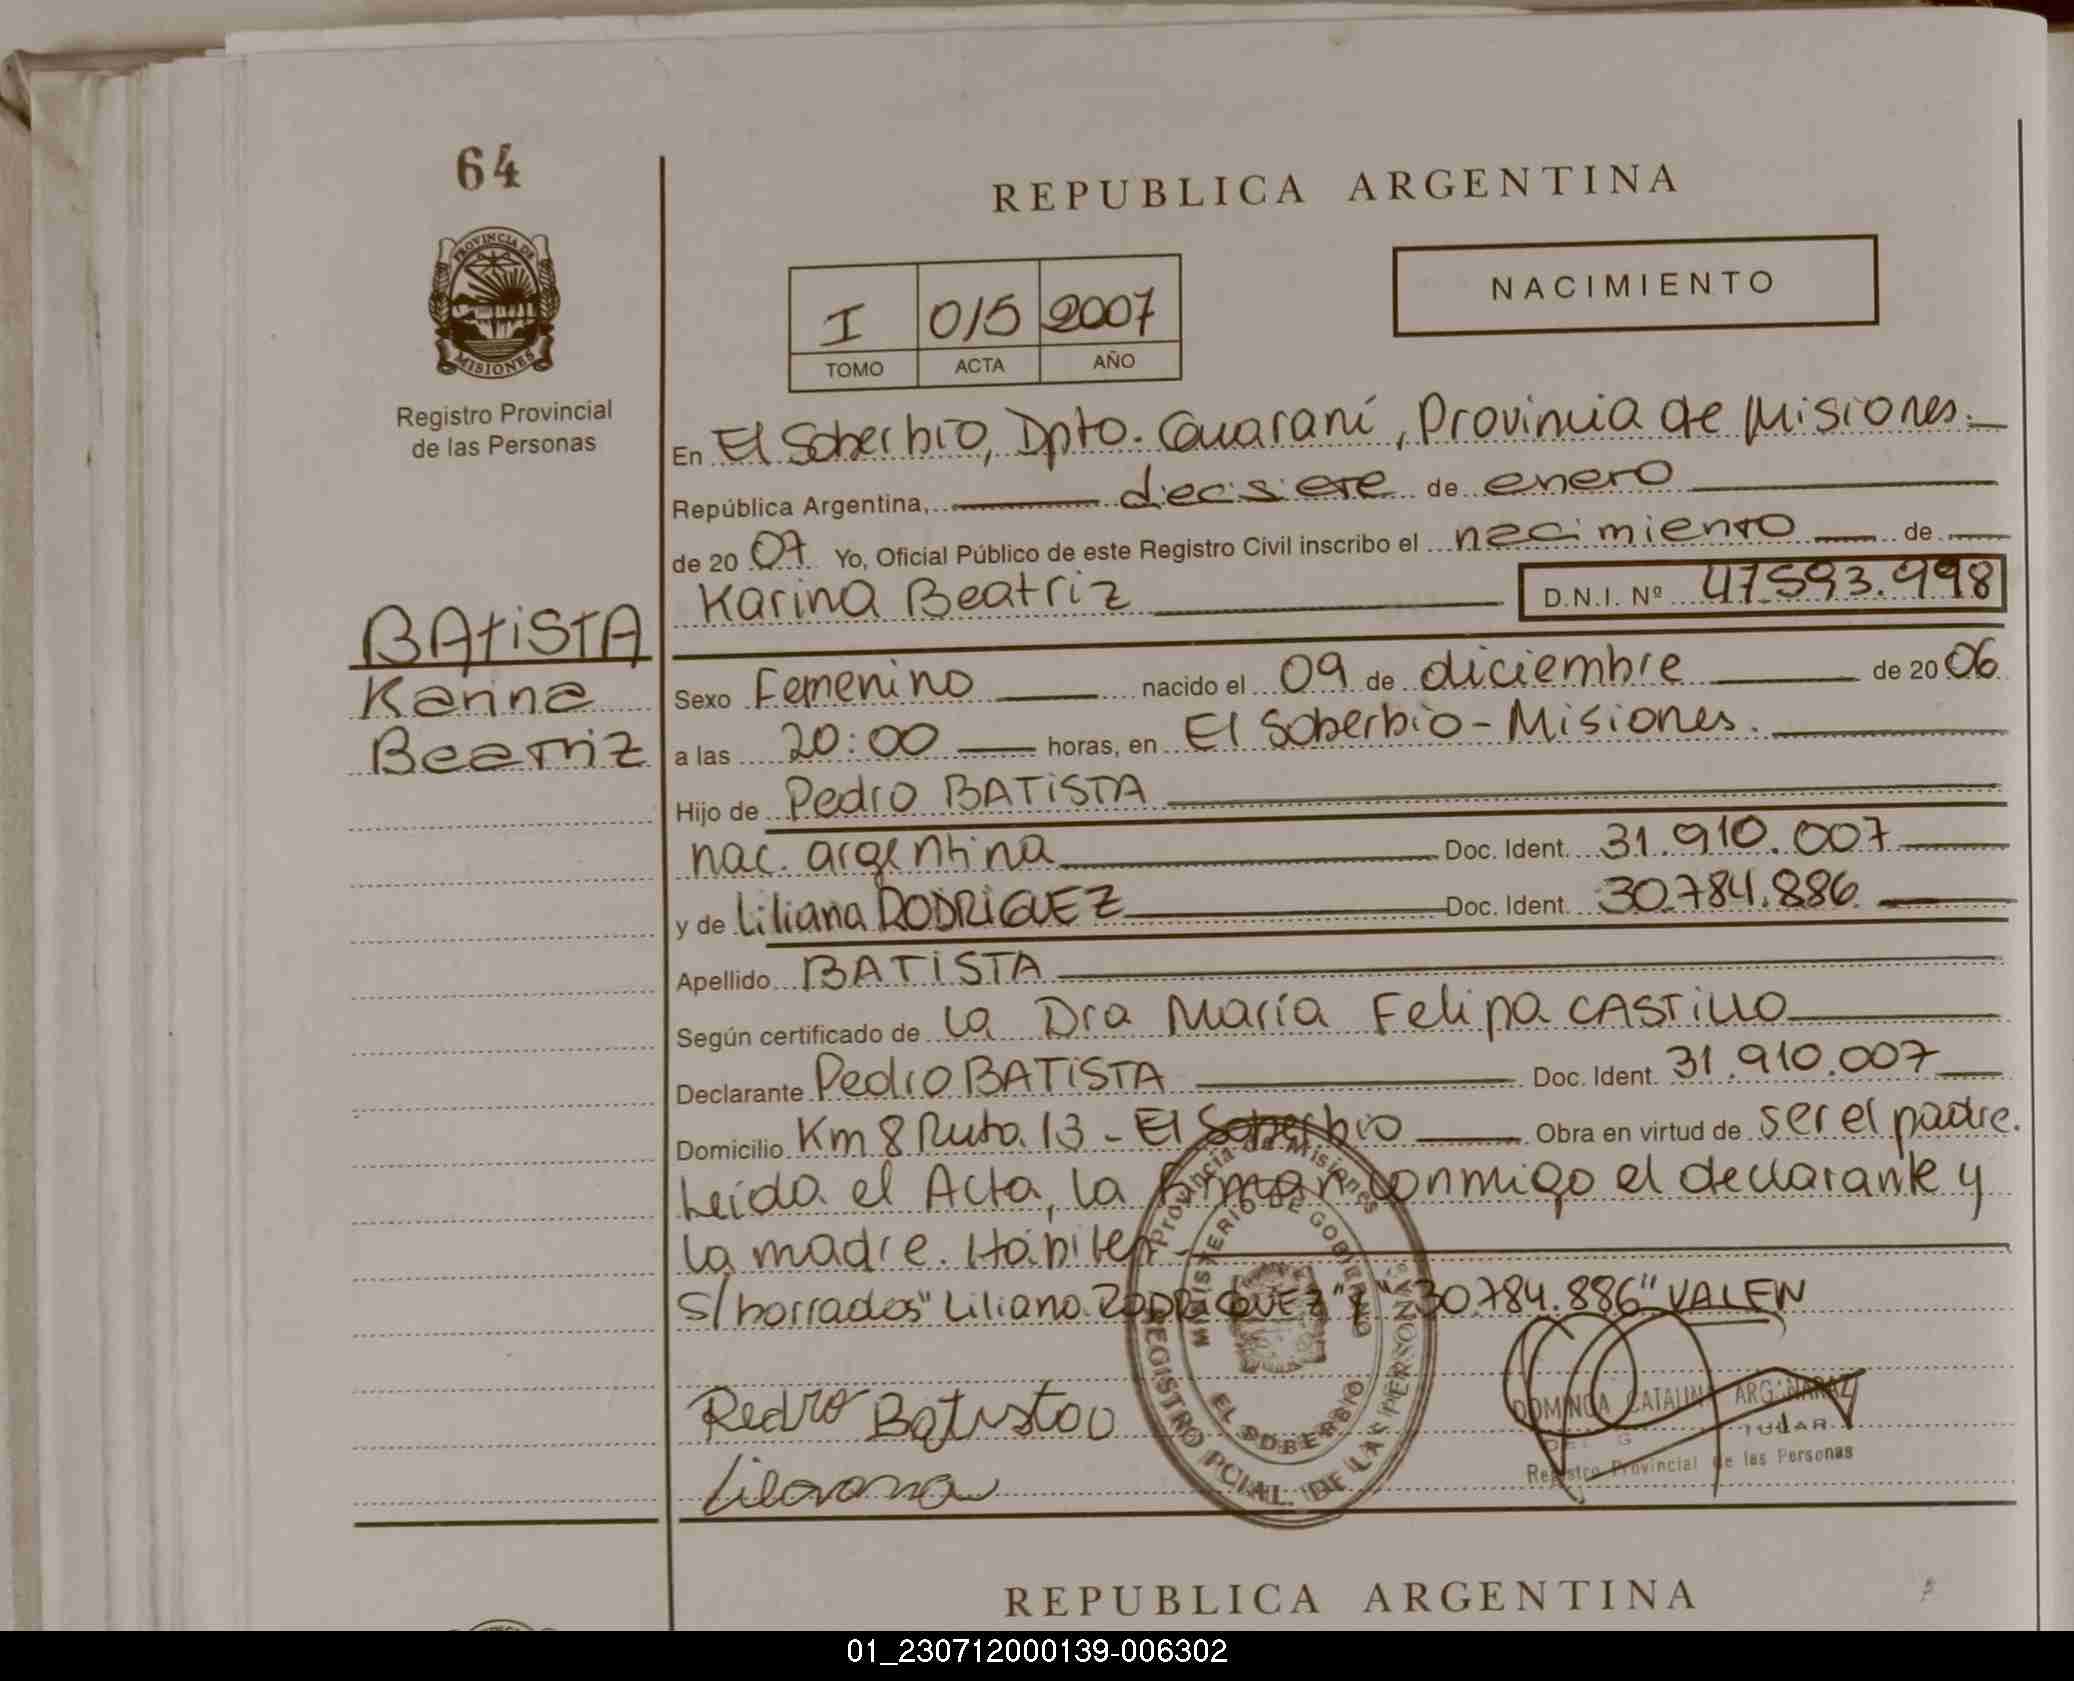 64
PROVINCIA DE
MISIONES
Registro Provincial
de las Personas
REPUBLICA ARGENTINA
NACIMIENTO
I 015 2007
TOMO ACTA AÑO
En El Soberbio, Dpto. Guaraní, Provincia de Misiones.
República Argentina, diecisiete de enero
de 20 07 Yo, Oficial Público de este Registro Civil inscribo el nacimiento de
Karina Beatriz D.N.I. Nº 47.593.998
BATISTA
Karina
Beatriz
Sexo Femenino nacido el 09 de diciembre de 20 06
a las 20:00 horas, en El Soberbio - Misiones.
Hijo de Pedro BATISTA
nac. argentina Doc. Ident. 31.910.007
y de Liliana RODRIGUEZ Doc. Ident. 30.784.886
Apellido BATISTA
Según certificado de la Dra María Felipa CASTILLO
Declarante Pedro BATISTA Doc. Ident. 31.910.007
Domicilio Km 8 Ruta 13 - El Soberbio Obra en virtud de ser el padre.
Leída el Acta, la firman conmigo el declarante y
la madre. Hábiles.
s/borrados "Liliana RODRIGUEZ" y "30.784.886" VALEN
Provincia de Misiones
MINISTERIO DE GOBIERNO
EL SOBERBIO
REGISTRO PCIAL. DE LAS PERSONAS
Pedro Batista
Liliana
DOMINGA CATALINA ARGAÑARAZ
Registro Provincial de las Personas
REPUBLICA ARGENTINA
01_230712000139-006302